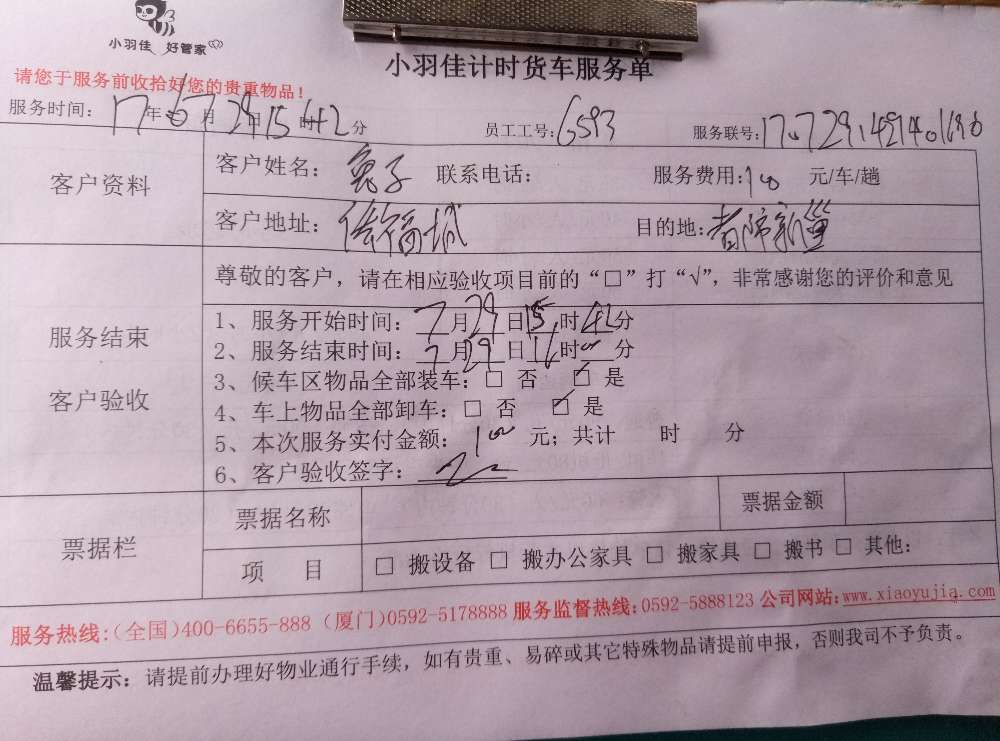 小羽佳 好管家
小羽佳计时货车服务单
请您于服务前收拾好您的贵重物品！
服务时间： 17年 月29日15时42分 员工工号：6593 服务联号：
客户资料
客户姓名：兔子 联系电话： 服务费用：100 元/车/趟
客户地址： 目的地：
服务结束
客户验收
尊敬的客户，请在相应验收项目前的“□”打“√”，非常感谢您的评价和意见
1、服务开始时间：7月29日15时42分
2、服务结束时间：7月29日16时00分
3、候车区物品全部装车：□ 否 ☑ 是
4、车上物品全部卸车：□ 否 ☑ 是
5、本次服务实付金额：100 元；共计 时 分
6、客户验收签字：
票据栏
票据名称 票据金额
项 目 □ 搬设备 □ 搬办公家具 □ 搬家具 □ 搬书 □ 其他：
服务热线：（全国）400-6655-888（厦门）0592-5178888 服务监督热线：0592-5888123 公司网站：www.xiaoyujia.com
温馨提示：请提前办理好物业通行手续，如有贵重、易碎或其它特殊物品请提前申报，否则我司不予负责。